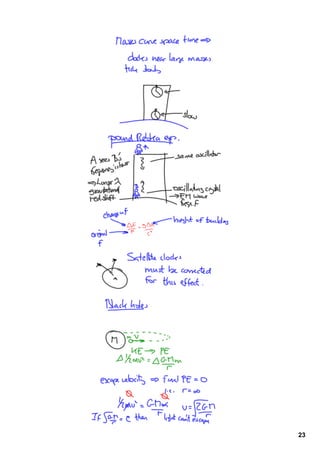 Masses curve space time ⇒
clocks near large masses
tick slowly
slow
Pound Rebka exp.
A sees B's
frequency slower
⇒ Longer λ
gravitational
red shift
same oscillator
oscillating crystal
→ EM wave
freq. F
change in f
original
f
ΔF/F = gΔH/c²
height of building
Satellite clocks
must be corrected
for this effect.
Black holes
M
v
KE → PE
Δ½mv² = ΔGMm/r
escape velocity ⇒ final PE = 0
i.e. r = ∞
½mv² = GMm/r
v = √2GM/r
If √2GM/r = c then light can't escape
23